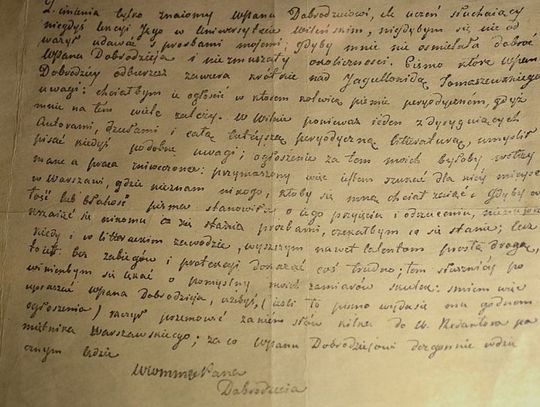 Z imienia tylko znaiomy WPana Dobrodzieiowi, ale uczeń słuchaiący
niegdyś lekcyi Jego w Uniwersytecie Wileńskim, nigdybym się nie od
ważył udawać z prosbami moiemi, gdyby mnie nie osmielała dobroć
WPana Dobrodzieja i nie zmuszały okoliczności. Pismo które WPan
Dobrodziey odbierzesz zawiera krótkie nad Jagiellonidą Tomaszewskiego
uwagi: chciałbym ie ogłosić w ktorem kolwiek pismie peryodycznem, gdyż
mnie na tém wiele zależy. W Wilnie ponieważ ieden z dyrygujących
Autorami, dziełami i całą tuteyszą peryodyczną literaturą, umyślił
pisać niegdyś podobne uwagi; ogłoszenie za tem moich byłoby wstrzy
mane a praca zniweczona: przymuszony więc iestem szukać dla niéy mieysca
w Warszawi, gdzie nieznam nikogo, ktoby się mną chciał zaiąć. Gdyby war
tość lub błahość pisma stanowiła o iego przyięciu i odrzuceniu,
się nikomu prosbami, czekałbym co się stanie; lecz
kiedy i w litterackim zawodzie, wyższym nawet talentom prostą drogą,
bez zabiegów i protekcyi dokazać coś trudno; tem słuszniéy po
winienbym się lękać o pomyślny moich zamiarów skutek: smiem więc
upraszać WPana Dobrodzieja, ażebyś, (ieśli to pismo wydaie się godnem
ogłoszenia) raczył przemówić za niém słów kilka do W. Redaktora pa
miętnika Warszawskiego; za co WPanu Dobrodzieiowi dozgonnie wdzię
cznym będzie
WWMMci Pana
Dobrodzieia